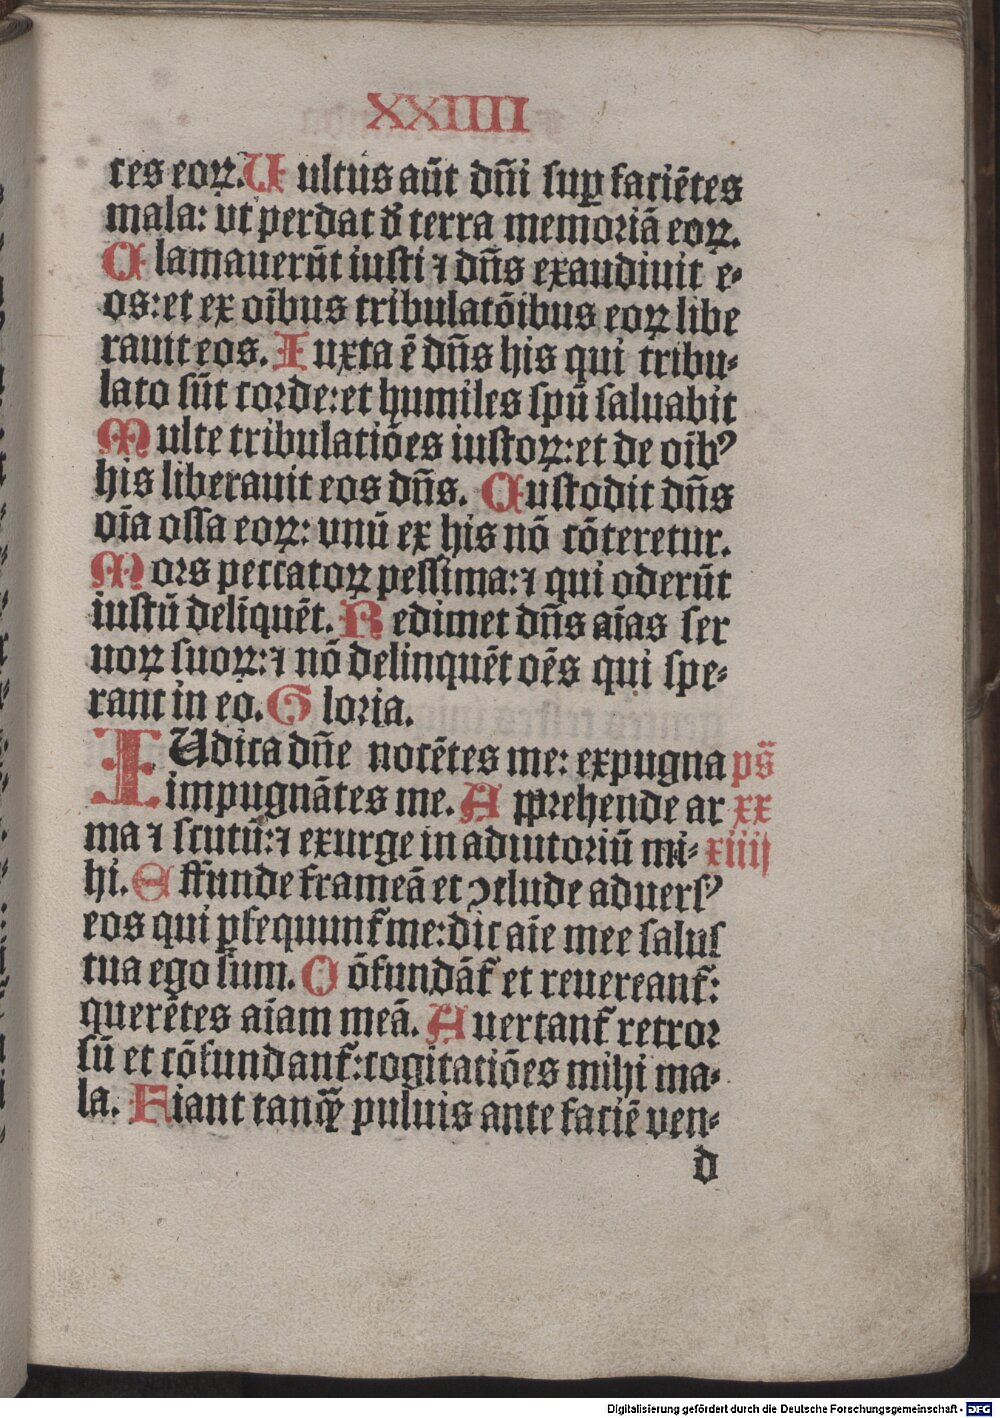 XXIIII
ces eoꝝ. Uultus aūt dn̄i suꝑ faciētes
mala: vt perdat d̕ terra memoriā eoꝝ.
Clamauerūt iusti ⁊ dn̄s exaudiuit e-
os: et ex oībus tribulatōibus eoꝝ libe
rauit eos. Iuxta ē dn̄s his qui tribu-
lato sūt corde: et humiles spū saluabit
Multe tribulatiōes iustoꝝ: et de oībꝰ
his liberauit eos dn̄s. Custodit dn̄s
oīa ossa eoꝝ: vnū ex his nō cōteretur.
Mors peccatoꝝ pessima: ⁊ qui oderūt
iustū deliquēt. Redimet dn̄s aīas ser
uoꝝ suoꝝ: ⁊ nō delinquēt oēs qui spe-
rant in eo. Gloria.
IUdica dn̄e nocētes me: expugna ps̄
impugnātes me. Apprehende ar xx
ma ⁊ scutū: ⁊ exurge in adiutoriū mi- xiiij
hi. Effunde frameā et ꝯclude aduersꝰ
eos qui ꝑsequunt᷑ me: dic aīe mee salus
tua ego sum. Cōfundāt᷑ et reuereant᷑:
querētes aīam meā. Auertant᷑ retror
sū et cōfundant᷑: cogitatiōes mihi ma-
la. Fiant tanꝙ̄ puluis ante faciē ven-
d
Digitalisierung gefördert durch die Deutsche Forschungsgemeinschaft - DFG